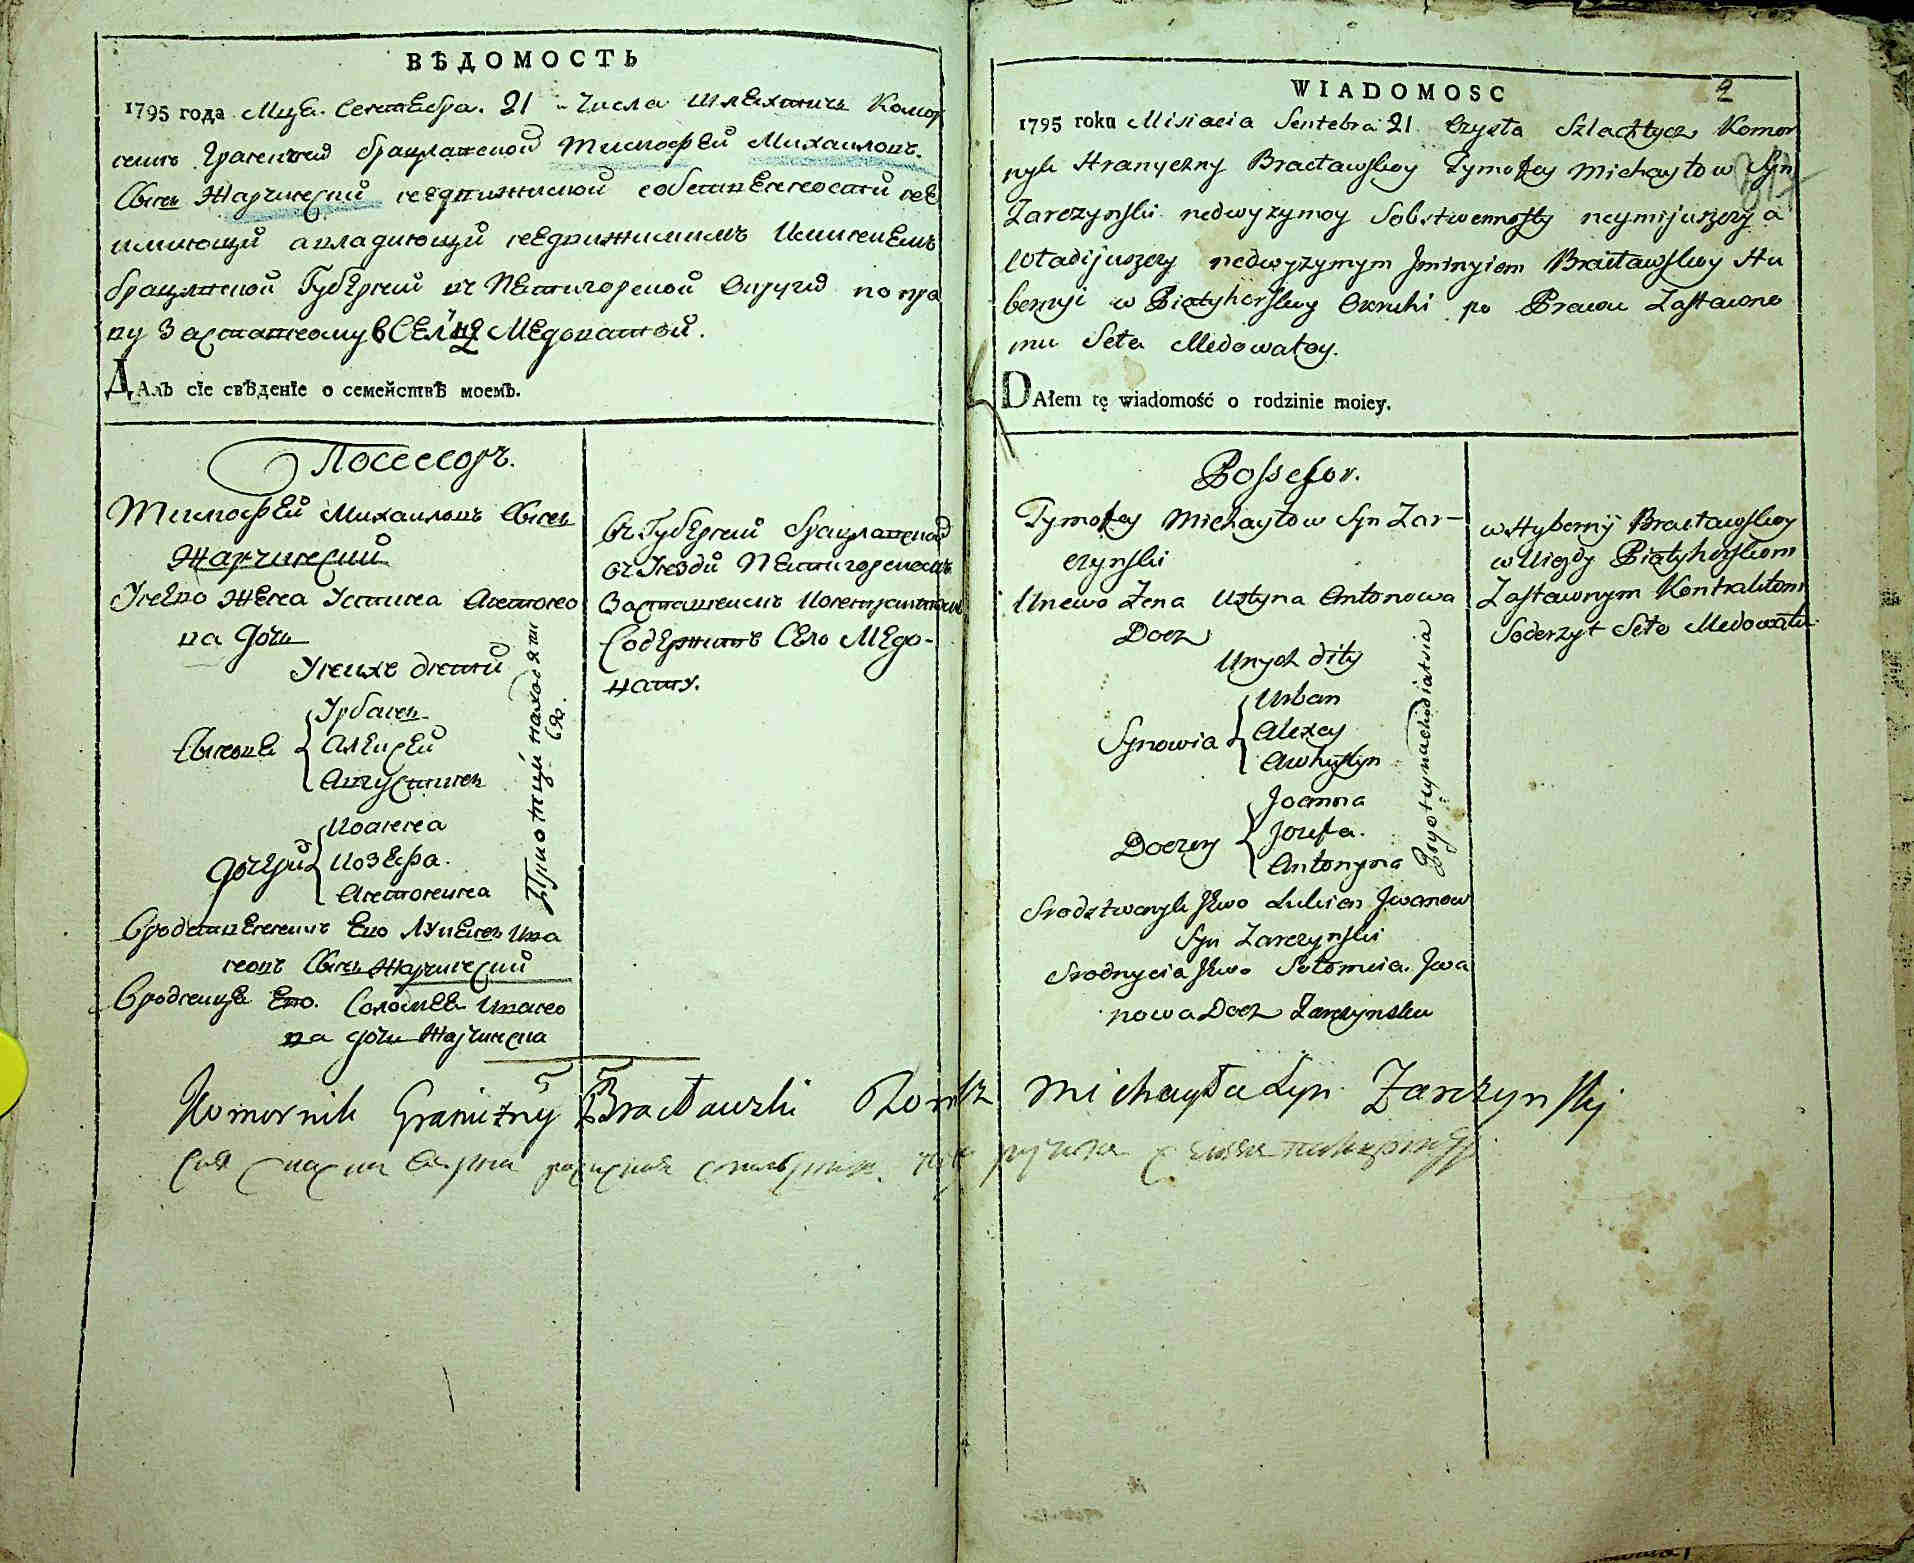 ВѢДОМОСТЬ
1795 года Мца. Сентебра. 21 Числа Шлехтичъ Комор
никъ Граничний брацлавской Тимофей Михаиловъ.
Сынъ Жарчинский недвижимой собственности не
имиющий авладиющий недвижимимъ Имениемъ
брацлавской Губернии въ Пятигорской Округи по пра
ву Заставному в Селѣ Медоватой.
ДАлъ сіе свѣденіе о семействѣ моемъ.
Посессоръ.
Тимофей Михаиловъ Сынъ
Жарчинский
Унево Жена Устина Антоно
ва дочь
Уних дети
Сынове
Урбанъ
Алексей
Августинъ
дочери
Иоанна
Иозефа.
Антонина
При отци находят
ся.
Сродственникъ Его Лукянъ Ива
новъ Сынъ Жарчинский
Сродница Его. Соломея Ивано
ва дочь Жарчинска
Въ Губернии брацлавской
въ Уезди Пятигорскомъ
Заставнимъ Контрактом
Содержитъ Село Медо-
вату.
WIADOMOSC
2
1795 roku Misiacia Sentebra 21. Czysła Szlachtycz Komor
nyk Hranyczny Bracławskoy Tymofey Michayłow Syn
Zarczynski nedwyzymoy Sobstwennosty neymijuszczy a
władijuszczy nedwyzymym Jminyiem Bracławskoy Hu
bernyi w Piatyhorskoy Okruhi po Prawu Zastawno
mu Seła Medowatoy.
DAłem tę wiadomość o rodzinie moiey.
Possesor.
Tymofey Michayłow Syn Zar-
czynski
Unewo Zena Ustyna Antonowa
Docz
Unych dity
Synowia
Urban
Alexey
Awhustyn
Doczery
Joanna
Jozefa.
Antonyna
Pryotcynachodiatsia
Srodstwenyk Jewo Lukian Jwanow
Syn Zarczynski
Srodnycia Jewo Sołomeia. Jwa
nowa Docz Zarczynska
w Hubernij Bracławskoy
w Uiezdy Piatyhorskom
Zastawnym Kontraktom
Soderzyt Sełe Medowatu
Komornik Graniczny Bracławski Michayła Syn Zarczynskij